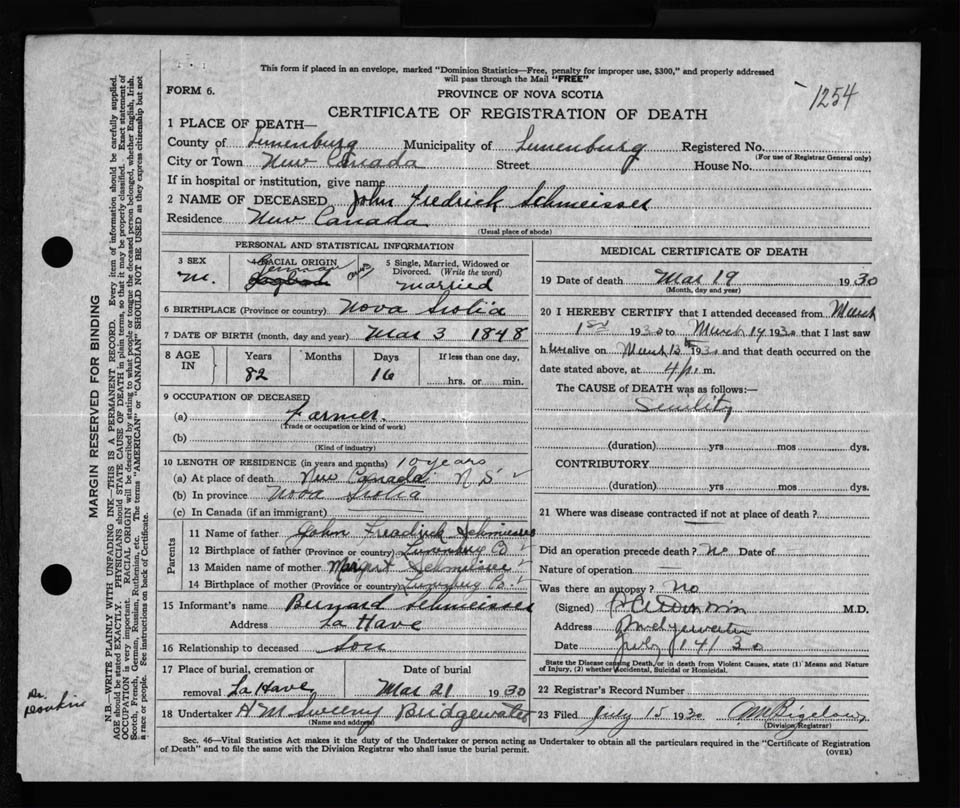 This form if placed in an envelope, marked "Dominion Statistics—Free, penalty for improper use, $300," and properly addressed
will pass through the Mail "FREE"
FORM 6.
PROVINCE OF NOVA SCOTIA
1254
CERTIFICATE OF REGISTRATION OF DEATH
1 PLACE OF DEATH—
County of Lunenburg Municipality of Lunenburg Registered No.
(For use of Registrar General only)
City or Town New Canada Street House No.
If in hospital or institution, give name
2 NAME OF DECEASED John Fredrick Schmeisser
Residence New Canada
(Usual place of abode)
PERSONAL AND STATISTICAL INFORMATION
3 SEX
M.
4 RACIAL ORIGIN
German
5 Single, Married, Widowed or
Divorced. (Write the word)
married
6 BIRTHPLACE (Province or country) Nova Scotia
7 DATE OF BIRTH (month, day and year) Mar 3 1848
8 AGE IN
Years Months Days If less than one day,
82 16 hrs. or min.
9 OCCUPATION OF DECEASED
(a) Farmer.
(Trade or occupation or kind of work)
(b)
(Kind of industry)
10 LENGTH OF RESIDENCE (in years and months) 10 years
(a) At place of death New Canada N S
(b) In province Nova Scotia
(c) In Canada (if an immigrant)
Parents
11 Name of father John Fredrick Schmeisser
12 Birthplace of father (Province or country) Lunenburg Co
13 Maiden name of mother Margret Schmeisser
14 Birthplace of mother (Province or country) Lunenburg Co.
15 Informant's name Bernard Schmeisser
Address La Have
16 Relationship to deceased Son
17 Place of burial, cremation or Date of burial
removal La Have Mar 21 1930
18 Undertaker A M Sweeny Bridgewater
(Name and address)
MEDICAL CERTIFICATE OF DEATH
19 Date of death Mar 19 1930
(Month, day and year)
20 I HEREBY CERTIFY that I attended deceased from March
1st 1930 to March 19 1930 that I last saw
him alive on March 13th 1930 and that death occurred on the
date stated above, at 4 p. m.
The CAUSE OF DEATH was as follows:—
Senility
(duration) yrs mos dys.
CONTRIBUTORY
(duration) yrs mos dys.
21 Where was disease contracted if not at place of death?
Did an operation precede death? no Date of —
Nature of operation —
Was there an autopsy? no
(Signed) M.D.
Address Bridgewater
Date July 14/30
State the Disease causing Death, or in death from Violent Causes, state (1) Means and Nature
of Injury, (2) whether Accidental, Suicidal or Homicidal.
22 Registrar's Record Number
23 Filed July 15 1930 M Bigelow
(Division Registrar)
Sec. 46—Vital Statistics Act makes it the duty of the Undertaker or person acting as Undertaker to obtain all the particulars required in the "Certificate of Registration
of Death" and to file the same with the Division Registrar who shall issue the burial permit.
(OVER)
MARGIN RESERVED FOR BINDING
N.B.—WRITE PLAINLY WITH UNFADING INK—THIS IS A PERMANENT RECORD. Every item of information should be carefully supplied.
AGE should be stated EXACTLY. PHYSICIANS should STATE CAUSE OF DEATH in plain terms, so that it may be properly classified. Exact statement of
OCCUPATION is very important. RACIAL ORIGIN will be described by stating to what people or tongue the deceased person belonged, whether English, Irish,
Scotch, French, German, Russian, Ruthenian, etc. The terms "AMERICAN" or "CANADIAN" SHOULD NOT BE USED as they express citizenship but not
a race or people. See instructions on back of Certificate.
Dr.